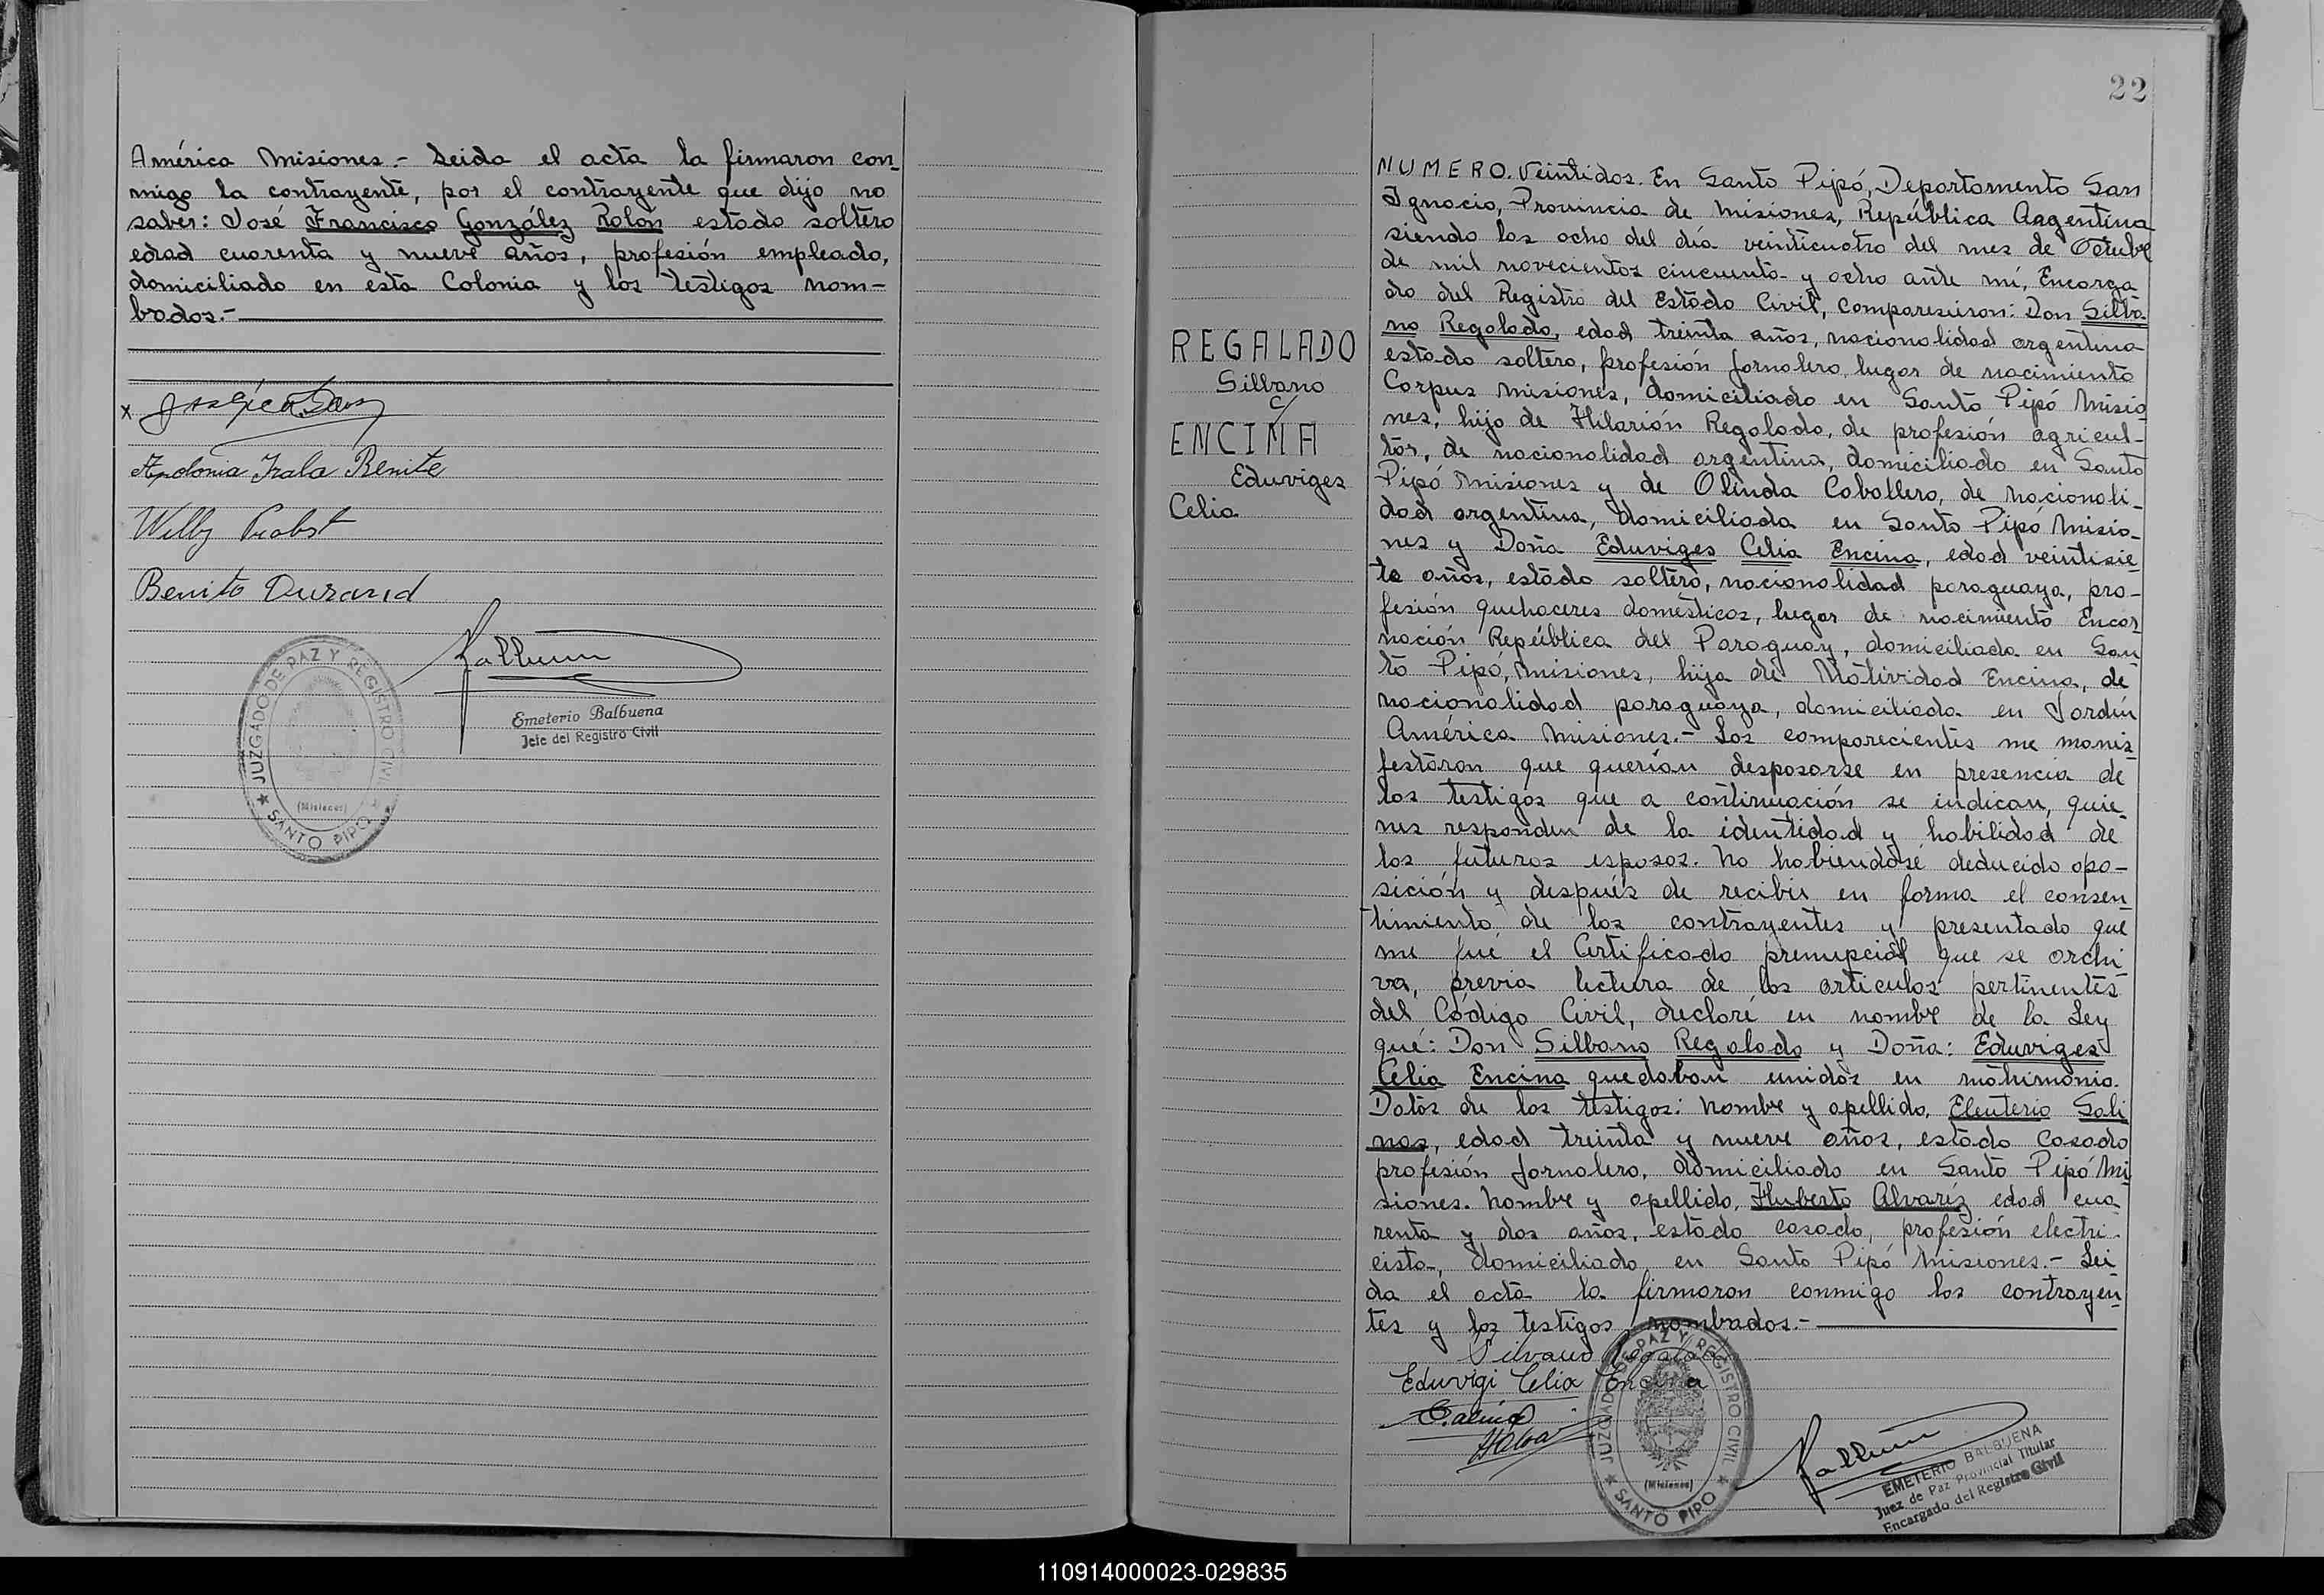 América Misiones.- Leida el acta la firmaron con_
migo la contrayente, por el contrayente que dijo no
saber: José Francisco González Rolón estado soltero
edad cuarenta y nueve años, profesión empleado,
domiciliado en esta Colonia y los testigos nom-
brados.-
x
Apolonia Irala Benite
Willy Probst
Benito Durand
Emeterio Balbuena
Jefe del Registro Civil
JUZGADO DE PAZ Y REGISTRO CIVIL
(Misiones)
SANTO PIPO
22
REGALADO
Silbano
c/
ENCINA
Eduviges
Celia
NUMERO. Veintidos. En Santo Pipó, Departamento San
Ignacio, Provincia de Misiones, República Argentina
siendo las ocho del día veinticuatro del mes de Octubre
de mil novecientos cincuenta y ocho ante mí, Encarga
do del Registro del Estado Civil, comparecieron: Don Silba
no Regalado, edad treinta años, nacionalidad argentina
estado soltero, profesión jornalero, lugar de nacimiento
Corpus Misiones, domiciliado en Santo Pipó Misio
nes, hijo de Hilarión Regalado, de profesión agricul-
tor, de nacionalidad argentina, domiciliado en Santo
Pipó Misiones y de Olinda Caballero, de nacionali_
dad argentina, domiciliada en Santo Pipó Misio_
nes y Doña Eduviges Celia Encina, edad veintisie_
te años, estado soltero, nacionalidad paraguaya, pro-
fesión quehaceres domésticos, lugar de nacimiento Encar
nación República del Paraguay, domiciliada en San
to Pipó, Misiones, hija de Natividad Encina, de
nacionalidad paraguaya, domiciliada en Jardín
América Misiones.- Los comparecientes me manis
festaron que querían desposarse en presencia de
los testigos que a continuación se indican, quie_
nes responden de la identidad y habilidad de
los futuros esposos. No habiendose deducido opo-
sición y después de recibir en forma el consen_
timiento de los contrayentes y presentado que
me fué el Certificado prenupcial que se archi
va, previa lectura de los artículos pertinentes
del Código Civil, declaré en nombre de la Ley
que: Don Silbano Regalado y Doña: Eduviges
Celia Encina quedaban unidos en matrimonio.
Datos de los testigos: Nombre y apellido, Eleuterio Sali
nas, edad treinta y nueve años, estado casado
profesión jornalero, domiciliado en Santo Pipó Mi
siones. Nombre y apellido, Huberto Alvarez edad cua
renta y dos años, estado casado, profesión electri-
cista, domiciliado en Santo Pipó Misiones.- Lei
da el acta la firmaron conmigo los contrayen
tes y los testigos nombrados.-
Silvano Regalado
Eduvigi Celia Encina
JUZGADO DE PAZ Y REGISTRO CIVIL
(Misiones)
SANTO PIPO
EMETERIO BALBUENA
Juez de Paz Provincial Titular
Encargado del Registro Civil
110914000023-029835